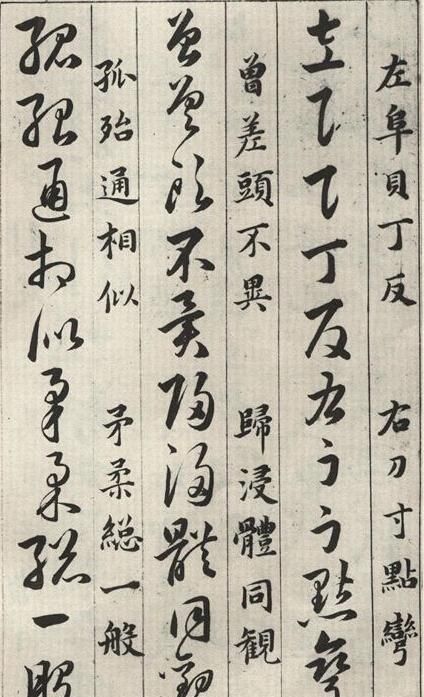 左阜貝丁反 右刀寸點彎
左阜貝丁反右刀寸點彎
曾差頭不異 歸浸體同観
曾差頭不異歸浸體同観
孤殆通相似 矛柔緫一般
孤殆通相似矛柔緫一般